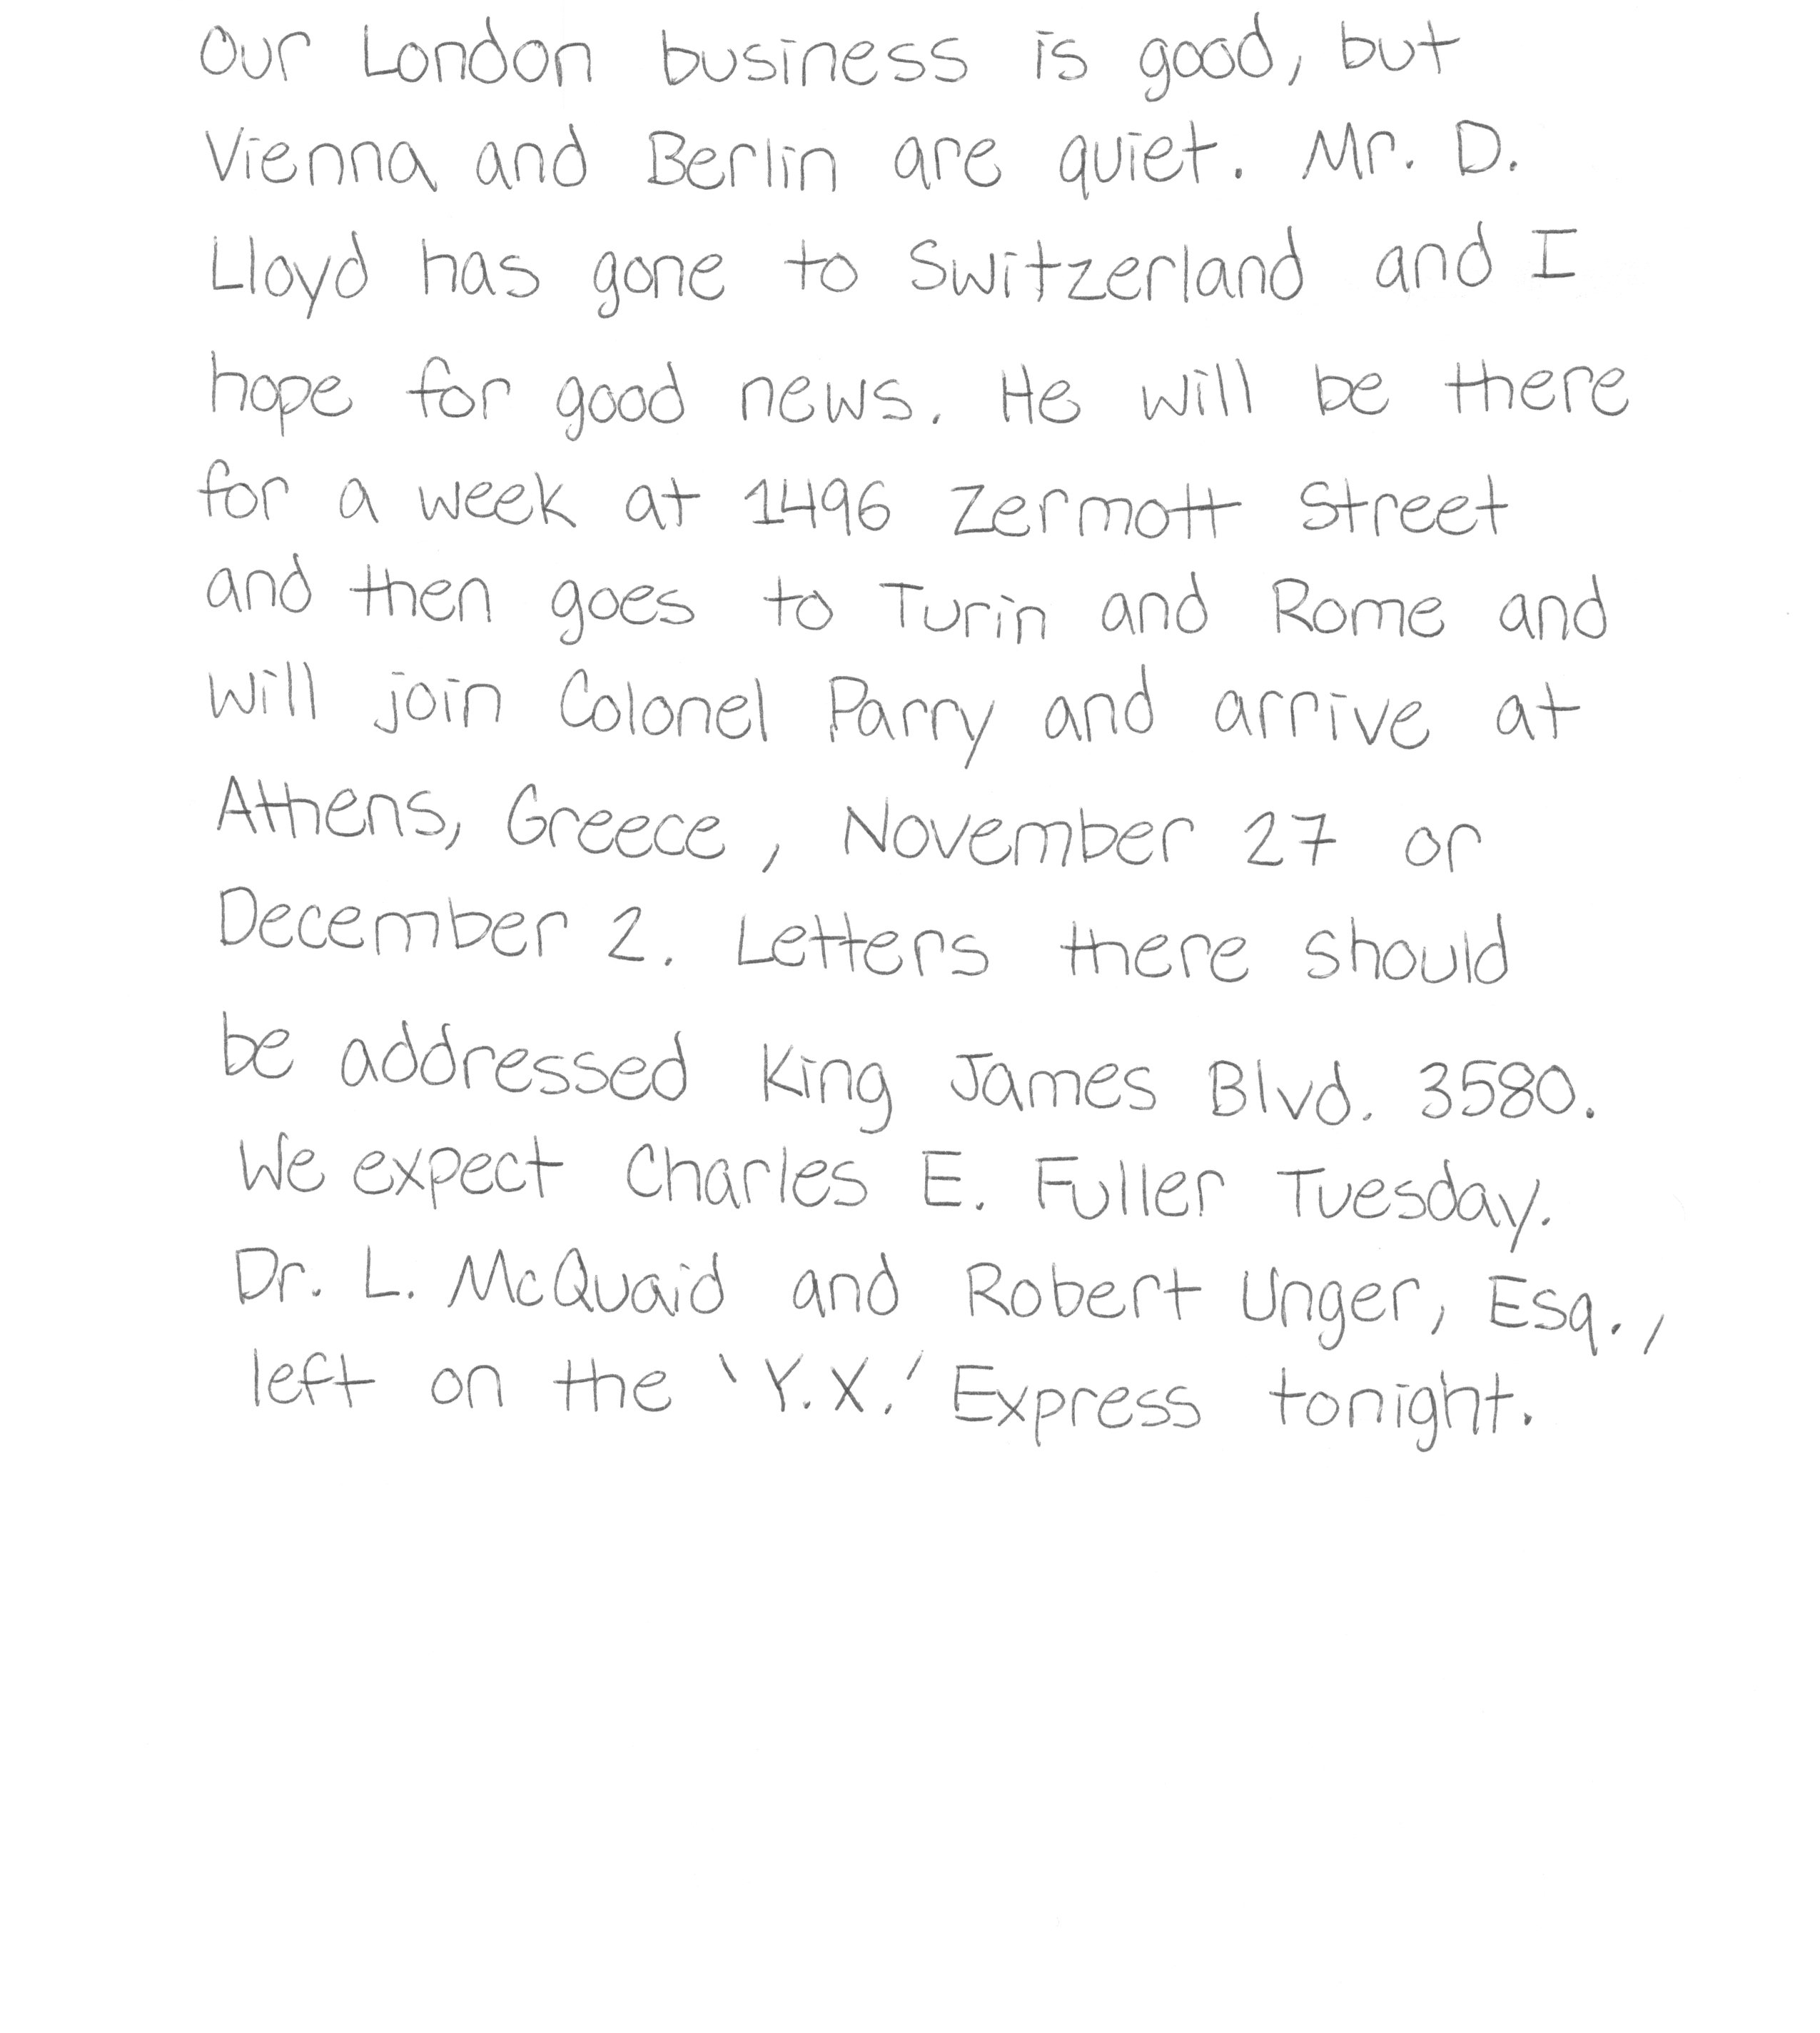 Our London business is good, but
Vienna and Berlin are quiet. Mr. D.
Lloyd has gone to Switzerland and I
hope for good news. He will be there
for a week at 1496 Zermott Street
and then goes to Turin and Rome and
will join Colonel Parry and arrive at
Athens, Greece, November 27 or
December 2. Letters there should
be addressed King James Blvd. 3580.
We expect Charles E. Fuller Tuesday.
Dr. L. McQuaid and Robert Unger, Esq.,
left on the 'Y.X.' Express tonight.